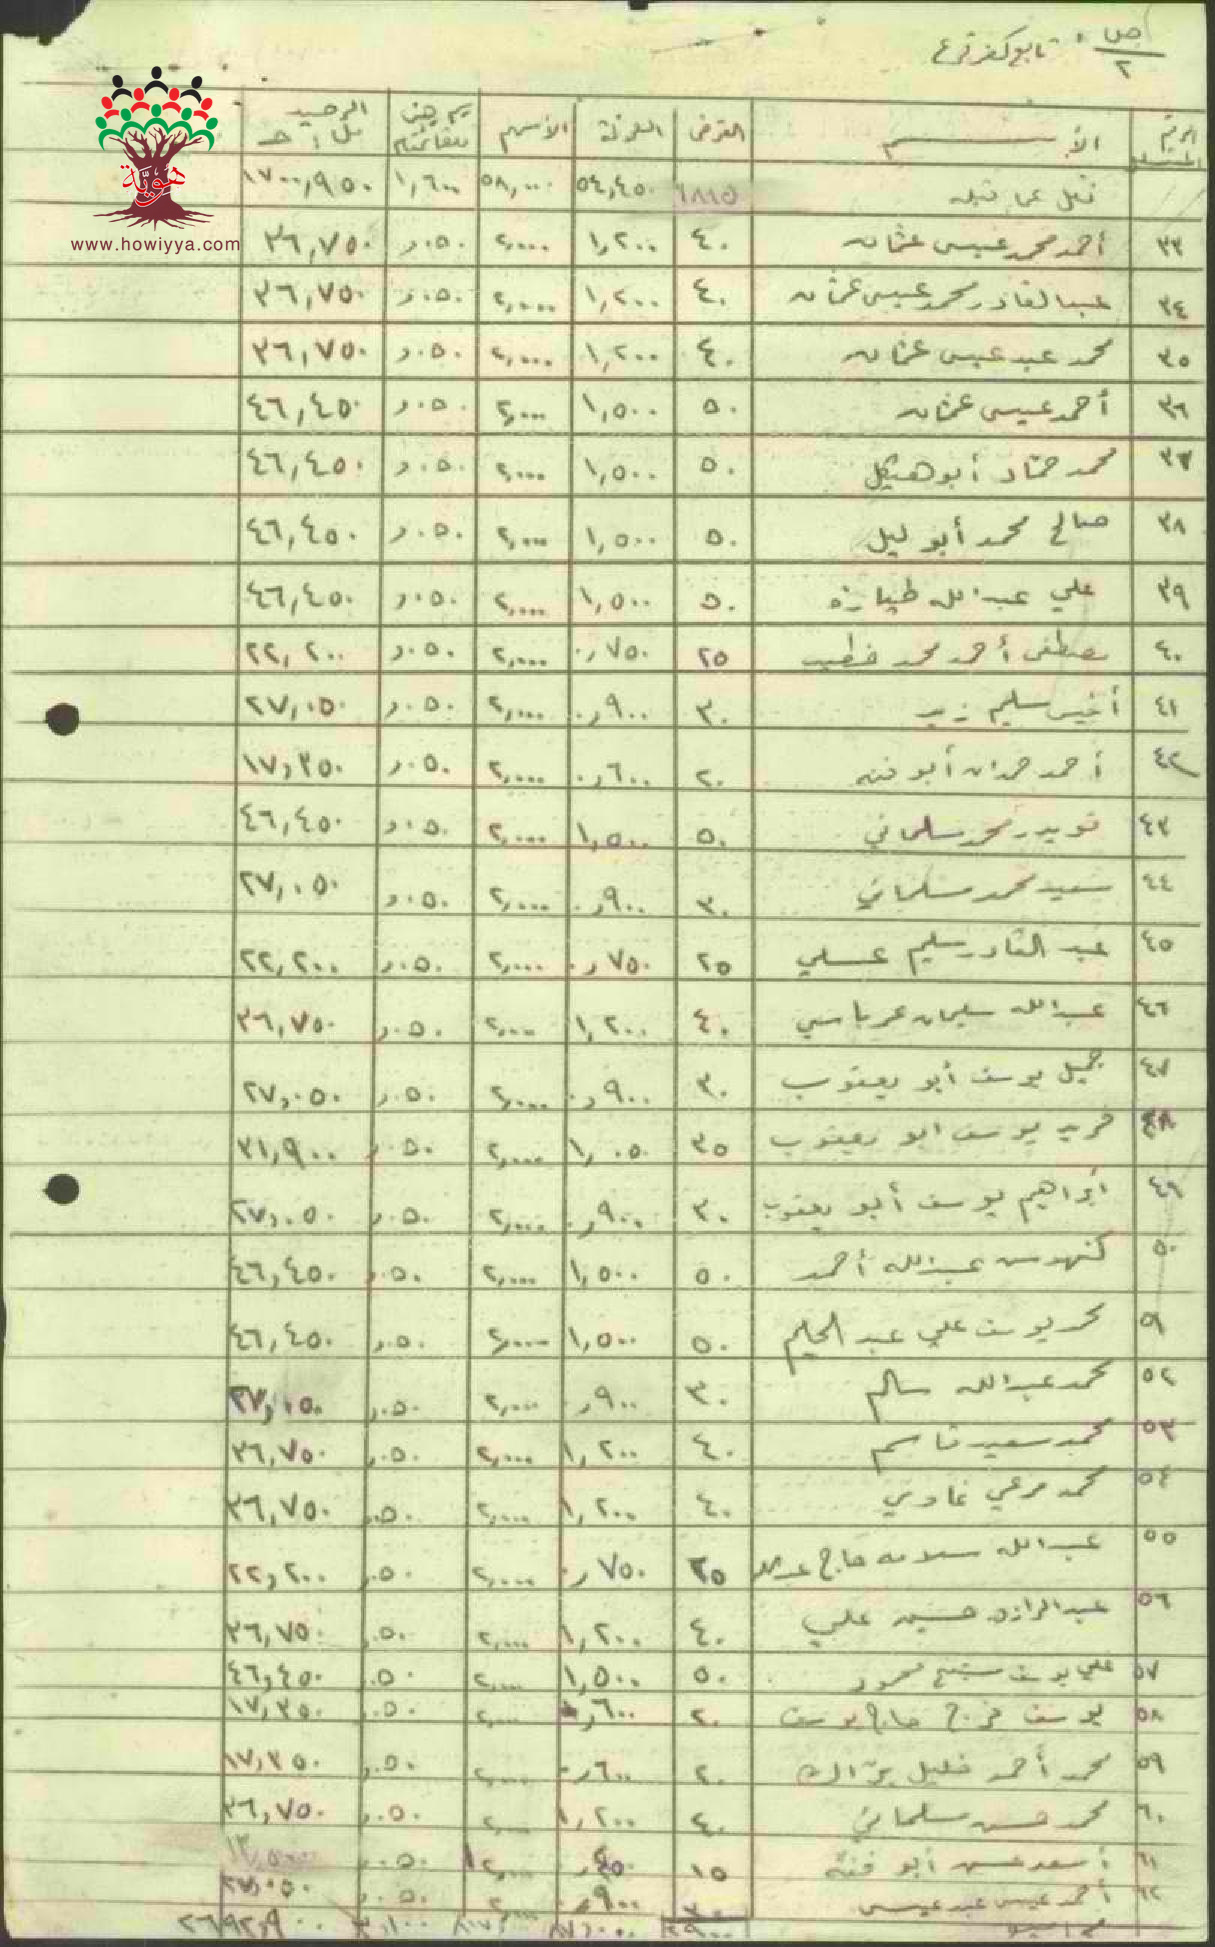 ص / ٢ تابع كفر قرع
الرقم المتسلسل الأسم القرض الفائدة الأسهم الرصيد
نقل عما قبله ٥٤,٤٥٠ ٥٨,٠٠٠ ١,٦٠٠ ١٧٠٠,٩٥٠
www.howiyya.com
هويّة
٣٣ أحمد محمد عيسى عثمان ٤٠ ١,٢٠٠ ٢,٠٠٠ ٠٥٠ر ٣٦,٧٥٠
٣٤ عبد القادر محمد عيسى عثمان ٤٠ ١,٢٠٠ ٢,٠٠٠ ٠٥٠ر ٣٦,٧٥٠
٣٥ محمد عبد عيسى عثمان ٤٠ ١,٢٠٠ ٢,٠٠٠ ٠٥٠ر ٣٦,٧٥٠
٣٦ أحمد عيسى عثمان ٥٠ ١,٥٠٠ ٢,٠٠٠ ٠٥٠ر ٤٦,٤٥٠
٣٧ محمد حماد أبو هيكل ٥٠ ١,٥٠٠ ٢,٠٠٠ ٠٥٠ر ٤٦,٤٥٠
٣٨ صالح محمد أبو ليل ٥٠ ١,٥٠٠ ٢,٠٠٠ ٠٥٠ر ٤٦,٤٥٠
٣٩ علي عبد الله طياره ٥٠ ١,٥٠٠ ٢,٠٠٠ ٠٥٠ر ٤٦,٤٥٠
٤٠ مصطفى أحمد محمد خطيب ٢٥ ٠,٧٥٠ ٢,٠٠٠ ٠٥٠ر ٢٢,٢٠٠
٤١ أنيس سليم زيد ٣٠ ٠,٩٠٠ ٢,٠٠٠ ٠٥٠ر ٢٧,٠٥٠
٤٢ أحمد حمدان أبو فنه ٢٠ ٠,٦٠٠ ٢,٠٠٠ ٠٥٠ر ١٧,٣٥٠
٤٣ محمد سلماني ٥٠ ١,٥٠٠ ٢,٠٠٠ ٠٥٠ر ٤٦,٤٥٠
٤٤ سعيد محمد سلماني ٣٠ ٠,٩٠٠ ٢,٠٠٠ ٠٥٠ر ٢٧,٠٥٠
٤٥ عبد القادر سليم عسلي ٢٥ ٠,٧٥٠ ٢,٠٠٠ ٠٥٠ر ٢٢,٢٠٠
٤٦ عبد الله سليمان عرباسي ٤٠ ١,٢٠٠ ٢,٠٠٠ ٠٥٠ر ٣٦,٧٥٠
٤٧ جميل يوسف أبو يعقوب ٣٠ ٠,٩٠٠ ٢,٠٠٠ ٠٥٠ر ٢٧,٠٥٠
٤٨ فريد يوسف ابو يعقوب ٣٥ ١,٠٥٠ ٢,٠٠٠ ٠٥٠ر ٣١,٩٠٠
٤٩ ابراهيم يوسف أبو يعقوب ٣٠ ٠,٩٠٠ ٢,٠٠٠ ٠٥٠ر ٢٧,٠٥٠
٥٠ عبد الله أحمد ٥٠ ١,٥٠٠ ٢,٠٠٠ ٠٥٠ر ٤٦,٤٥٠
٥١ محمد يوسف علي عبد الحليم ٥٠ ١,٥٠٠ ٢,٠٠٠ ٠٥٠ر ٤٦,٤٥٠
٥٢ محمد عبد الله سالم ٣٠ ٠,٩٠٠ ٢,٠٠٠ ٠٥٠ر ٢٧,٠٥٠
٥٣ محمد سعيد قاسم ٤٠ ١,٢٠٠ ٢,٠٠٠ ٠٥٠ر ٣٦,٧٥٠
٥٤ محمد مرعي غاوي ٤٠ ١,٢٠٠ ٢,٠٠٠ ٠٥٠ر ٣٦,٧٥٠
٥٥ عبد الله سلامه حاج عبد الله ٢٥ ٠,٧٥٠ ٢,٠٠٠ ٠٥٠ر ٢٢,٢٠٠
٥٦ عبد الرازق حسين علي ٤٠ ١,٢٠٠ ٢,٠٠٠ ٠٥٠ر ٣٦,٧٥٠
٥٧ علي يوسف شيخ محمود ٥٠ ١,٥٠٠ ٢,٠٠٠ ٠٥٠ ٤٦,٤٥٠
٥٨ يوسف فرج حاج يوسف ٢٠ ٠,٦٠٠ ٢,٠٠٠ ٠٥٠ر ١٧,٣٥٠
٥٩ محمد أحمد خليل ٢٠ ٠,٦٠٠ ٢,٠٠٠ ٠٥٠ر ١٧,٣٥٠
٦٠ محمد حسن سلماني ٤٠ ١,٢٠٠ ٢,٠٠٠ ٠٥٠ر ٣٦,٧٥٠
٦١ أسعد حسن أبو فنه ١٥ ٤٥٠ر ٢,٠٠٠ ٠٥٠ر
٦٢ أحمد عيسى عبد عيسى ٣٠ ٩٠٠ر ٢,٠٠٠ ٠٥٠ر ٢٧,٠٥٠
٨٧,٠٠٠ ٣,١٠٠ ٢٦٩٢,٩٠٠